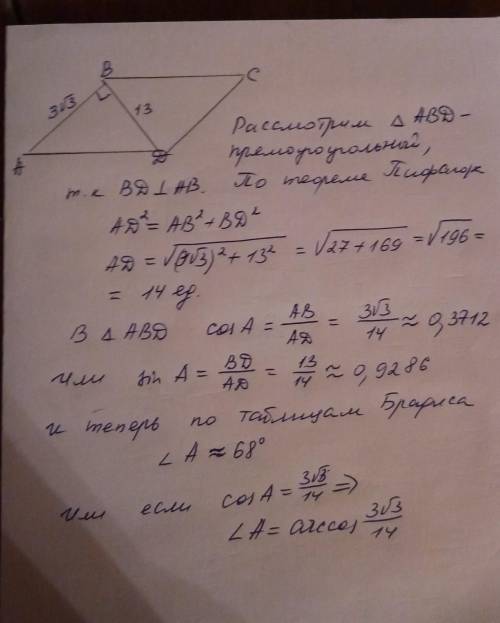 B
C
3√3
13
A
D
Рассмотрим △ ABD -
прямоугольный,
т.к BD⊥AB. По теореме Пифагора
AD² = AB² + BD²
AD = √(3√3)² + 13² = √27 + 169 = √196 =
= 14 ед.
В △ ABD cos A = AB/AD = 3√3/14 ≈ 0,3712
или sin A = BD/AD = 13/14 ≈ 0,9286
и теперь по таблицам Брадиса
∠ A ≈ 68°
или если cos A = 3√3/14 ⇒
∠A = arccos 3√3/14